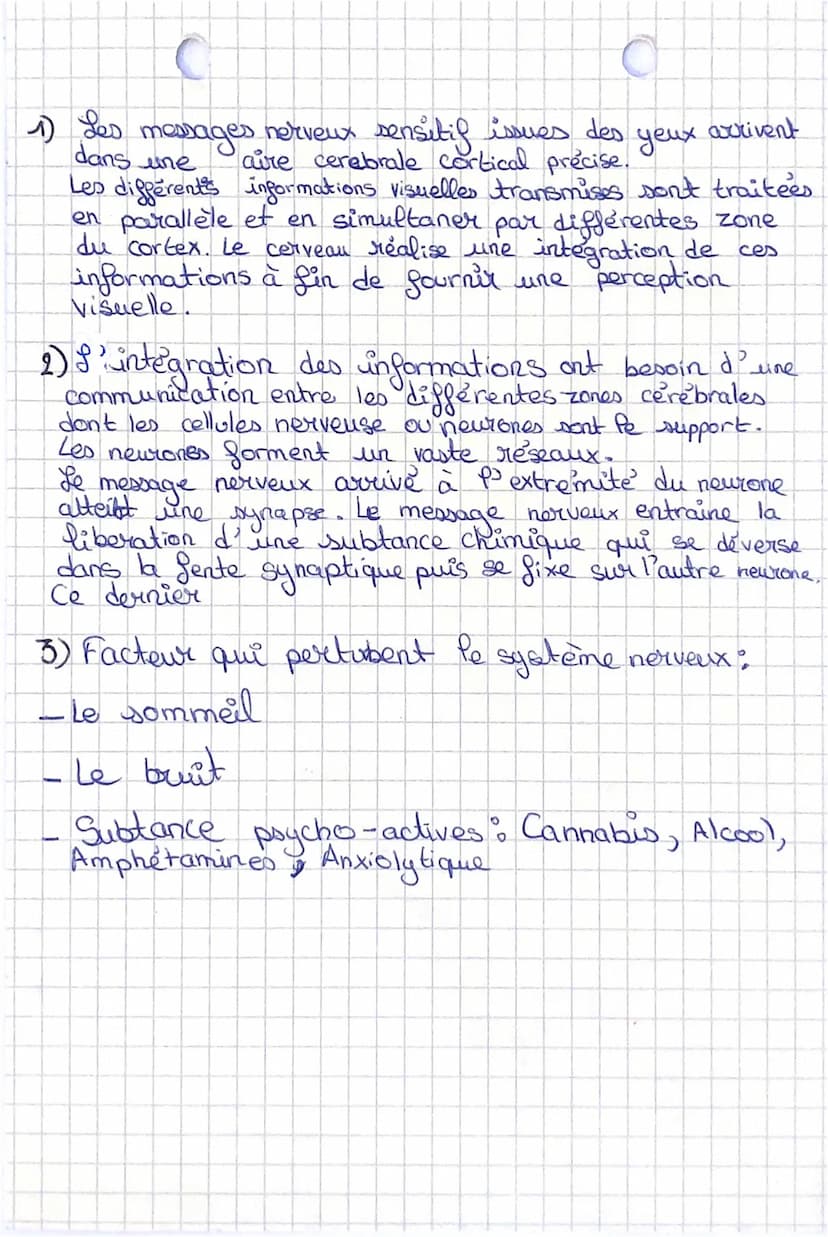 1) Les messages nerveux sensitif issues des yeux arrivent
dans une aire cerebrale cortical précise.
Les différents informations visuelles transmises sont traitées
en parallèle et en simultaner par différentes zone
du cortex. Le cerveau réalise une intégration de ces
informations à fin de fournir une perception
visuelle.
2) L'intégration des informations ont besoin d'une
communication entre les différentes zones cérébrales
dont les cellules nerveuse ou neurones sont le support.
Les neurones forment un vaste réseaux.
Le message nerveux arrivé à l'extremité du neurone
atteint une synapse. Le message nerveux entraine la
liberation d'une subtance chimique qui se déverse
dans la fente synaptique puis se fixe sur l'autre neurone.
Ce dernier
3) Facteur qui pertubent le système nerveux :
- Le sommeil
- Le bruit
- Subtance psycho-actives : Cannabis, Alcool,
Amphétamines, Anxiolytique